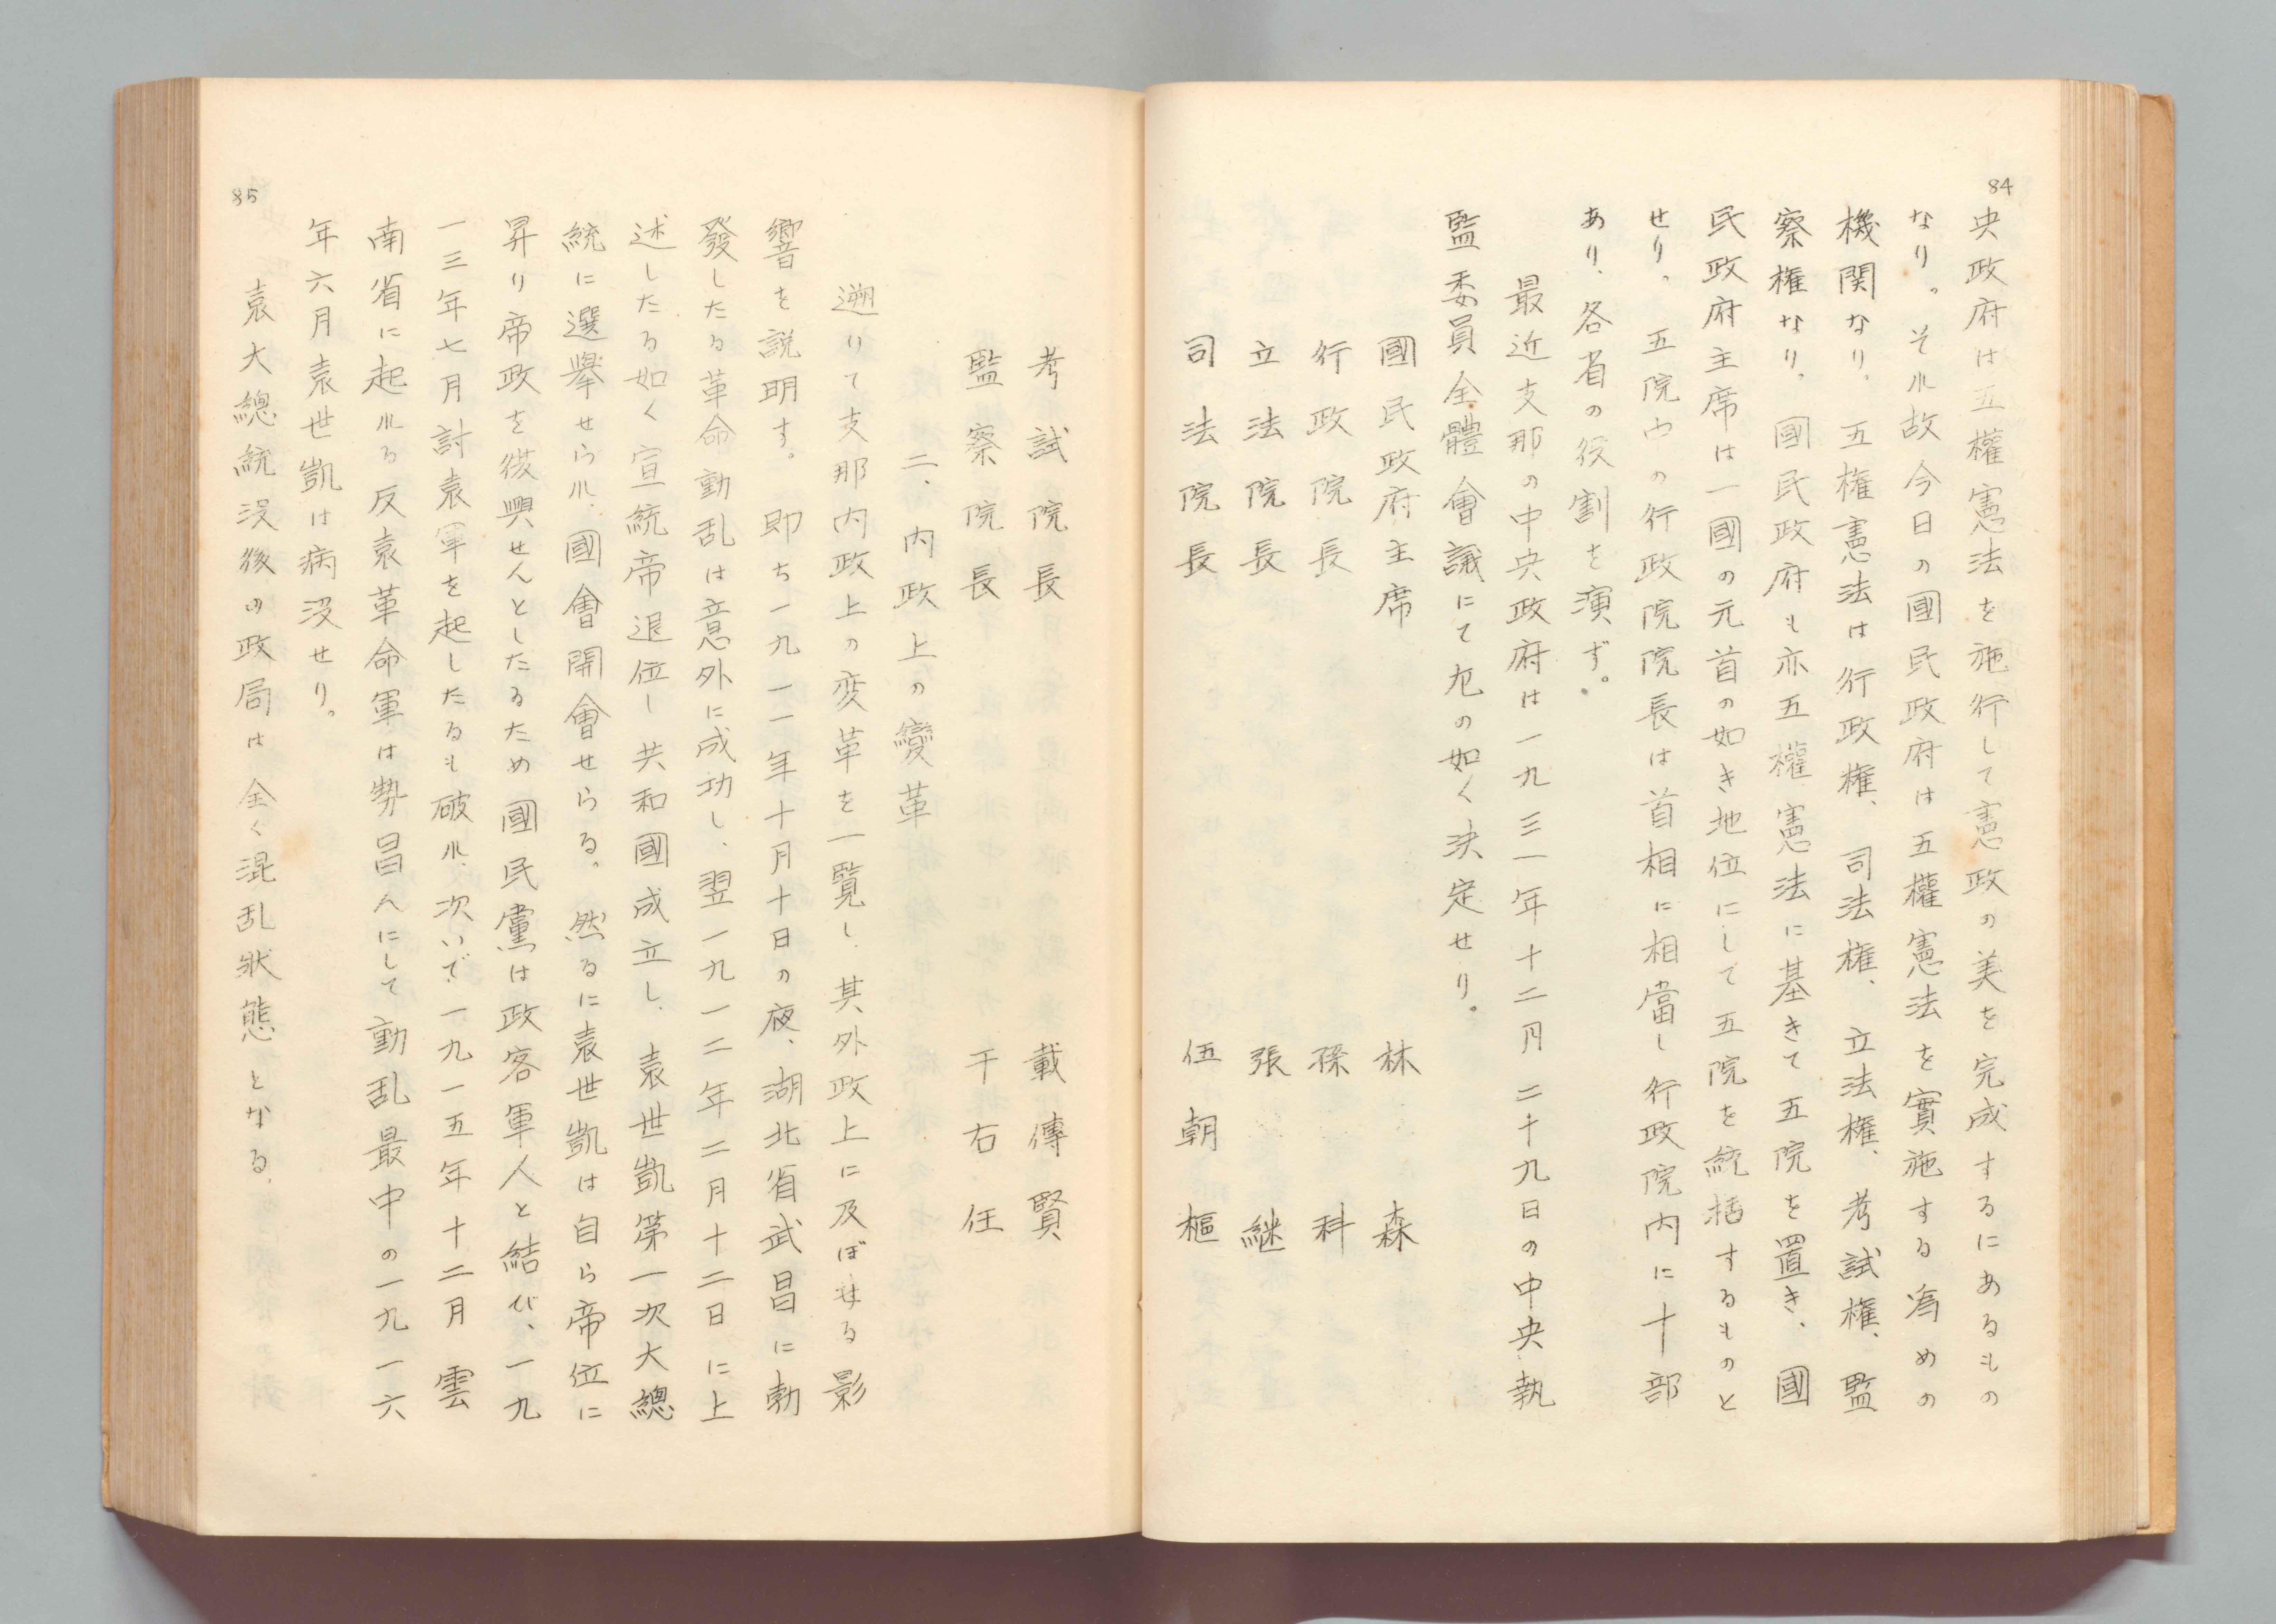 84
央政府は五權憲法を施行して憲政の美を完成するにあるもの
なり。それ故今日の國民政府は五權憲法を實施する為めの
機関なり。五権憲法は行政権、司法権、立法権、考試権、監
察権なり。國民政府も亦五權憲法に基きて五院を置き、國
民政府主席は一國の元首の如き地位にして五院を統括するものと
せり。五院中の行政院院長は首相に相當し行政院内に十部
あり、各省の役割を演ず。
最近支那の中央政府は一九三一年十二月二十九日の中央執
監委員全體會議にて左の如く決定せり。
國民政府主席 林森
行政院長 孫科
立法院長 張継
司法院長 伍朝樞
考試院長 載傳賢
監察院長 于右任
二、内政上の變革
遡りて支那内政上の変革を一覧し、其外政上に及ぼせる影
響を説明す。即ち一九一一年十月十日の夜、湖北省武昌に勃
發したる革命動乱は意外に成功し、翌一九一二年二月十二日に上
述したる如く宣統帝退位し共和國成立し、袁世凱第一次大總
統に選擧せられ、國會開會せらる。然るに袁世凱は自ら帝位に
昇り帝政を復興せんとしたるため國民黨は政客軍人と結び、一九
一三年七月討袁軍を起したるも破れ、次いで一九一五年十二月雲
南省に起れる反袁革命軍は勢昌んにして動乱最中の一九一六
年六月袁世凱は病没せり。
袁大總統没後の政局は全く混乱狀態となる、
85